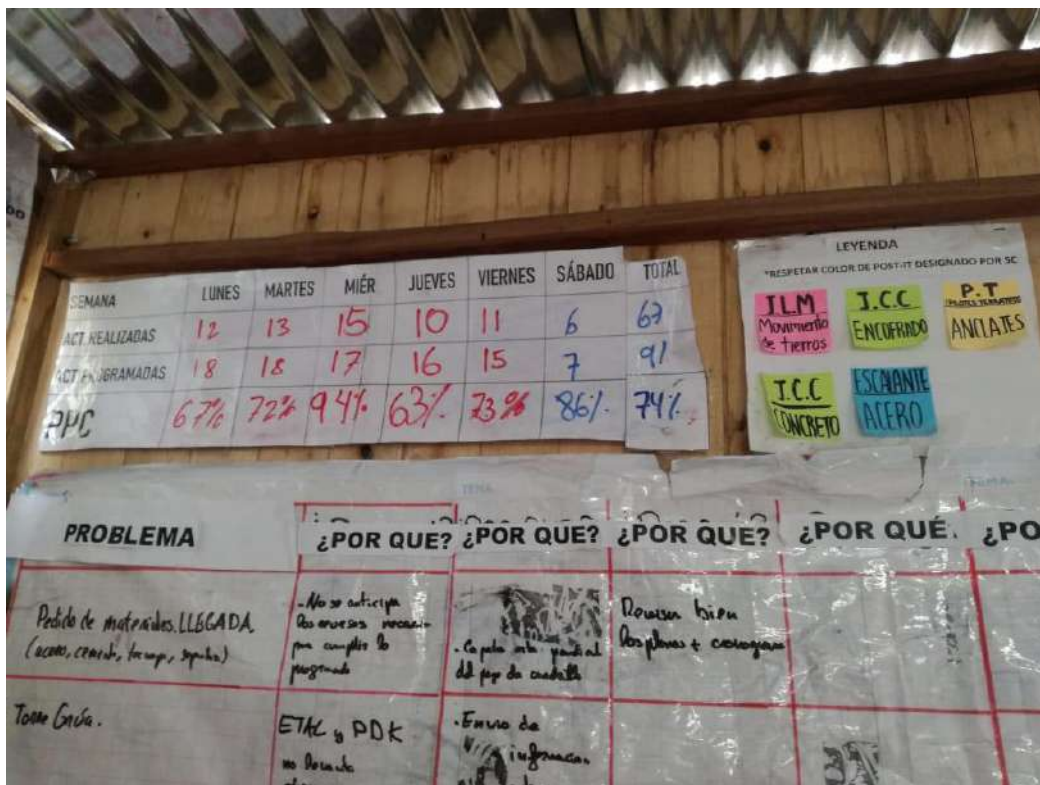 SEMANA LUNES MARTES MIÉR JUEVES VIERNES SÁBADO TOTAL
ACT REALIZADAS 12 13 15 10 11 6 67
ACT PROGRAMADAS 18 18 17 16 15 7 91
PPC 67% 72% 94% 63% 73% 86% 74%
LEYENDA
*RESPETAR COLOR DE POST-IT DESIGNADO POR SC
J.L.M
Movimiento
de tierras
J.C.C
ENCOFRADO
P.T
ANCLAJES
J.C.C
CONCRETO
ESCALANTE
ACERO
PROBLEMA ¿POR QUE? ¿POR QUE? ¿POR QUE? ¿POR QUE ¿PO
Pedido de materiales. LLEGADA.
(acero, cemento,
- No se anticipa
para cumplir lo
programado
del pago de
Revisar bien
los planos +
Torre Grúa.
ETAC y PDK
no
- Envio de
informacion